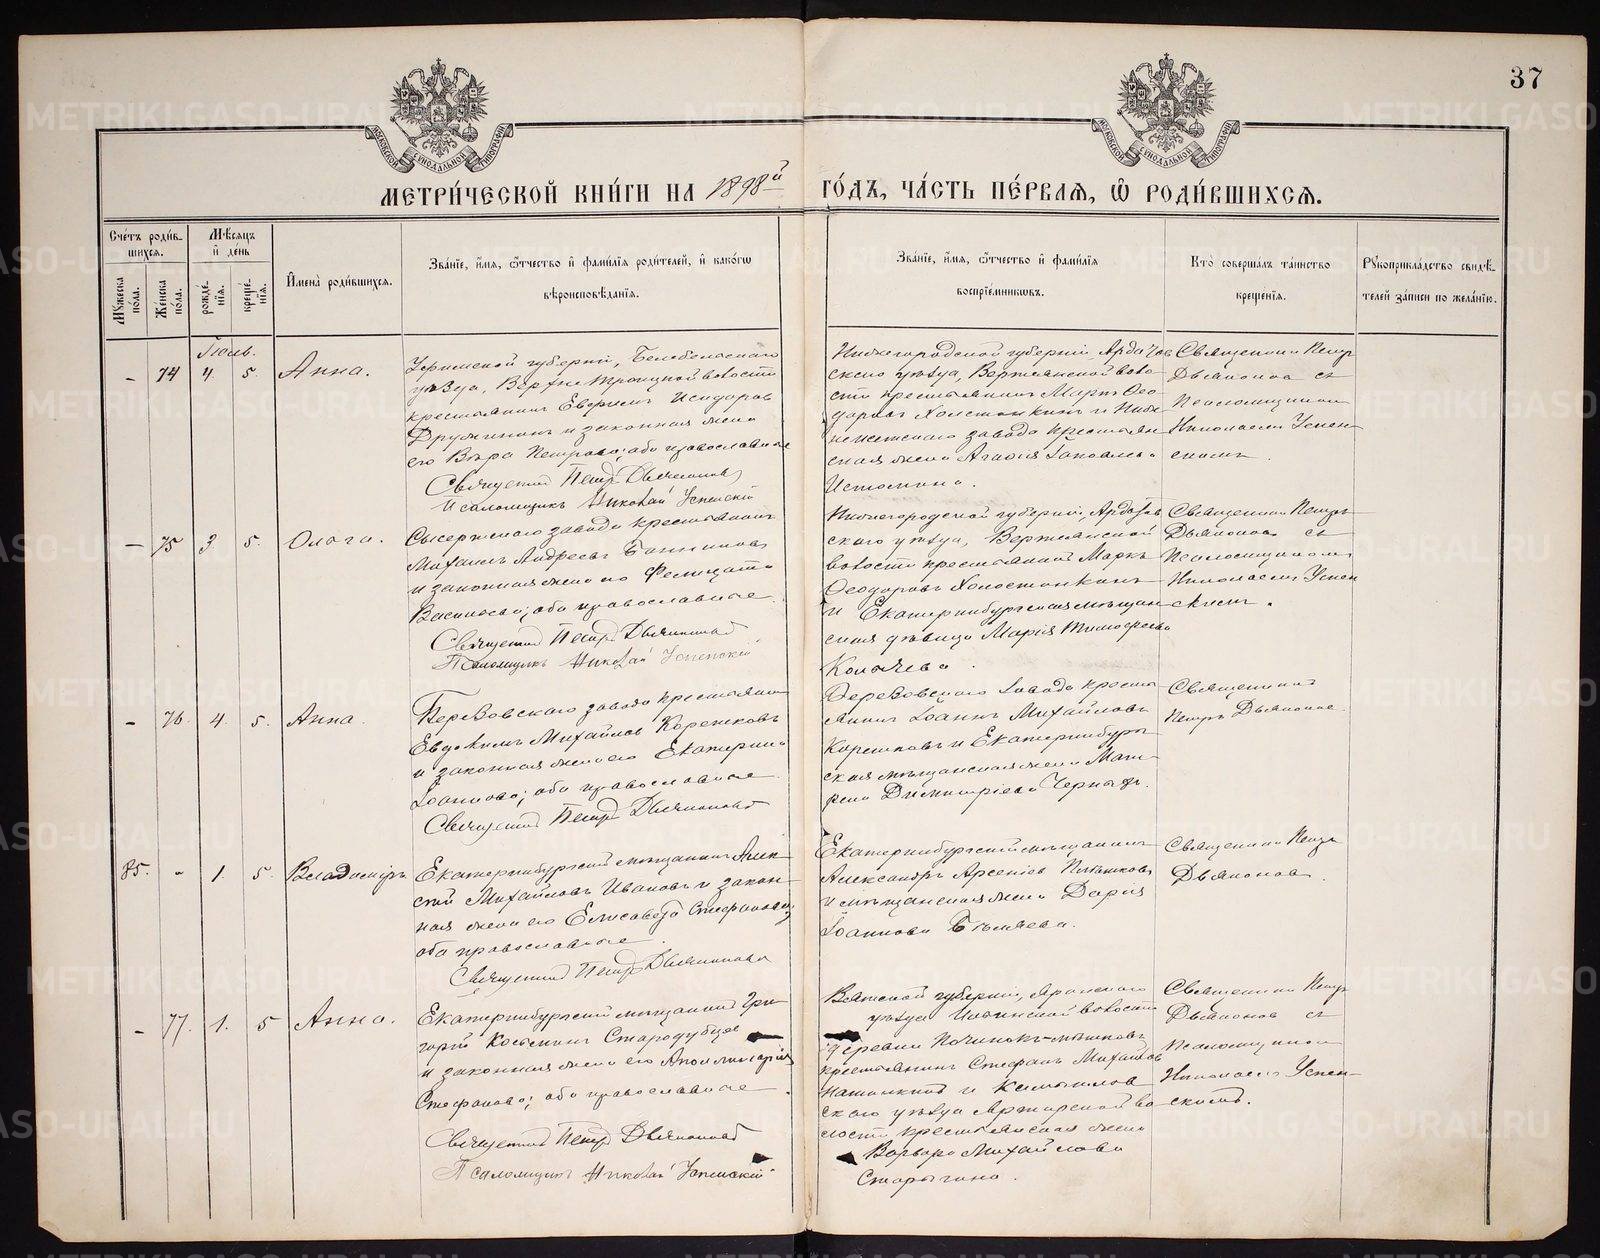 37
МОСКОВСКОЙ СѴНОДАЛЬНОЙ ТИПОГРАФІИ
МОСКОВСКОЙ СѴНОДАЛЬНОЙ ТИПОГРАФІИ
МЕТРИ́ЧЕСКОЙ КНИ́ГИ НА 1898й ГО́ДЪ, ЧА́СТЬ ПЕ́РВАѦ, Ѿ РОДИ́ВШИХСѦ.
Сче́тъ роди́в-
шихсѧ.
Мꙋ́жеска по́ла.
Же́нска по́ла.
Мѣ́сѧцъ
и́ де́нь
рожде́-
нїѧ.
креще́-
нїѧ.
И҆мена̀ роди́вшихсѧ.
Зва́нїе, и҆́мѧ, ѻ҆́тчество и҆ фами́лїѧ роди́телей, и҆ како́гѡ
вѣроисповѣ́данїѧ.
Зва́нїе, и҆́мѧ, ѻ҆́тчество и҆ фами́лїѧ
воспрїе́мникѡвъ.
Кто̀ соверша́лъ та́инство
креще́нїѧ.
Рꙋкоприкла́дство свидѣ́-
телей за́писи по жела́нїю.
Іюль.
- 74 4. 5 Анна.
Уфимской губерніи, Белебеевскаго
уѣзда, Верхне Троицкой волости
крестьянинъ Евфимъ Исидоровъ
Дружининъ и законная жена
его Вѣра Петрова; оба православные
Священникъ Петръ Дьяконовъ
Псаломщикъ Николай Успенскій
Нижегородской губерніи, Ардатов
скаго уѣзда, Вертьяновской воло-
сти крестьянинъ Маркъ Ѳео
доровъ Холостякинъ и Ниж
неисетскаго завода крестьян
ская жена Агафія
Истомина.
Священникъ Петръ
Дьяконовъ съ
Псаломщикомъ
Николаемъ Успен-
скимъ.
- 75 3 5. Ольга.
Сысертскаго завода крестьянинъ
Михаилъ Андреевъ Банниковъ
и законная жена его Фелицата
Васильева; оба православные
Священникъ Петръ Дьяконовъ
Псаломщикъ Николай Успенскій
Нижегородской губерніи, Ардатов
скаго уѣзда, Вертьяновской
волости крестьянинъ Маркъ
Ѳеодоровъ Холостякинъ
и Екатеринбургская мѣщан
ская дѣвица Марія Тимофеева
Священникъ Петръ
Дьяконовъ съ
Псаломщикомъ
Николаемъ Успен
скимъ.
- 76. 4. 5. Анна.
Березовскаго завода крестьянинъ
Евдокимъ Михайловъ Корешковъ
и законная жена его Екатерина
Іоаннова; оба православные
Священникъ Петръ Дьяконовъ
Березовскаго завода кресть
янинъ Іоаннъ Михайловъ
Корешковъ и Екатеринбург
ская мѣщанская жена Мат-
рена Димитріева Черныхъ.
Священникъ
Петръ Дьяконовъ.
85. - 1. 5. Владиміръ
Екатеринбургскій мѣщанинъ Алек-
сѣй Михайловъ Ивановъ и закон-
ная жена его Елисавета Стефанова;
оба православные.
Священникъ Петръ Дьяконовъ
Екатеринбургскій мѣщанинъ
Александръ Арсеніевъ
и мѣщанская жена Дарія
Іоаннова Бѣляева.
Священникъ Петръ
Дьяконовъ.
- 77. 1. 5 Анна.
Екатеринбургскій мѣщанинъ Гри-
горій Косьминъ Стародубцевъ
и законная жена его Аполлинарія
Стефанова; оба православные.
Священникъ Петръ Дьяконовъ
Псаломщикъ Николай Успенскій
Вятской губерніи, Яранскаго
уѣзда Ильинской волости
деревни
крестьянинъ Стефанъ Михайловъ
и Камышлов
скаго уѣзда во
лости крестьянская жена
Варвара Михайлова
Старыгина.
Священникъ Петръ
Дьяконовъ съ
Псаломщикомъ
Николаемъ Успен-
скимъ.
METRIKI.GASO-URAL.RU